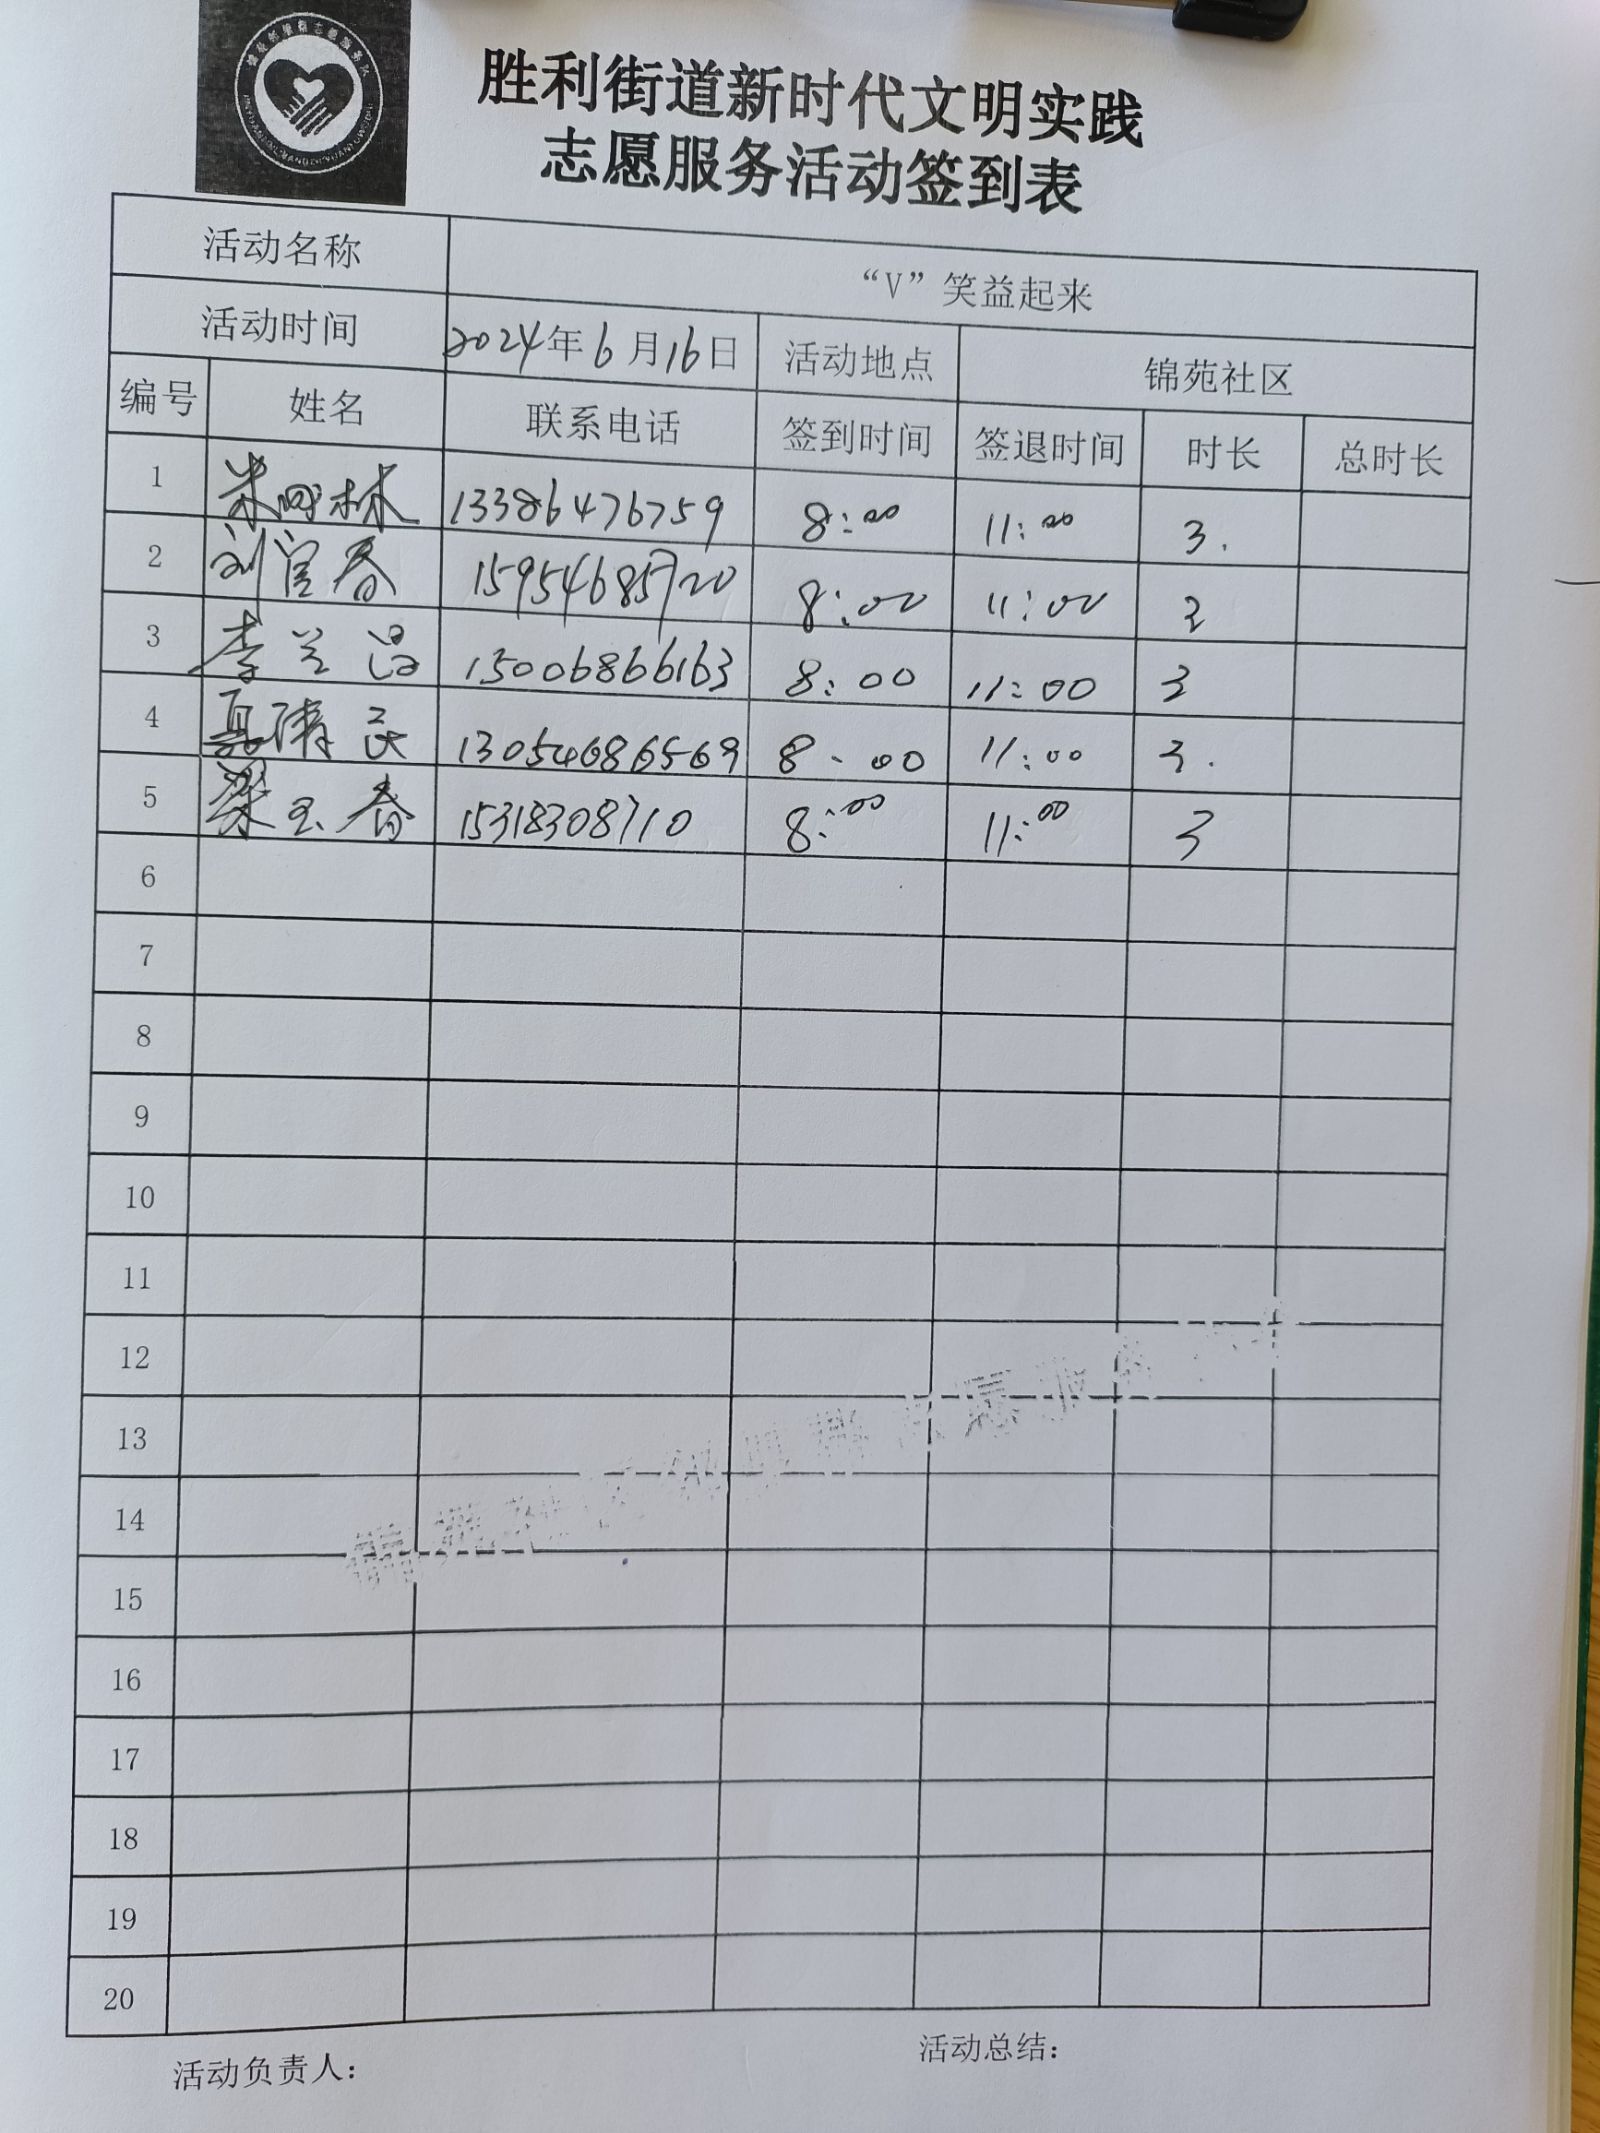 胜利街道新时代文明实践
志愿服务活动签到表
活动名称 “V”笑益起来
活动时间 2024年6月16日 活动地点 锦苑社区
编号 姓名 联系电话 签到时间 签退时间 时长 总时长
1 林 13386476759 8:00 11:00 3.
2 刘宜春 15954685720 8:00 11:00 3
3 李兰昌 15006866163 8:00 11:00 3
4 民 13054686569 8:00 11:00 3.
5 梁玉春 15318308710 8:00 11:00 3
6
7
8
9
10
11
12
13
14
15
16
17
18
19
20
活动负责人： 活动总结：